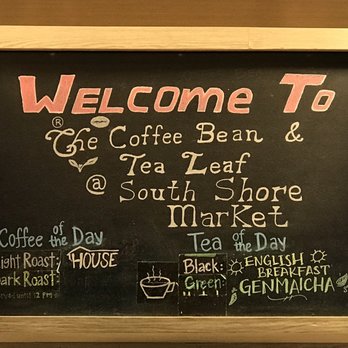 WELCOME TO
® The COFFEE BEAN &
TEA LEAF
@ SOUTH SHORE
MARKET
Coffee of the Day
ight Roast: HOUSE
Dark Roast:
until 12 PM
Tea of the Day
Black: ENGLISH BREAKFAST
Green: GENMAICHA